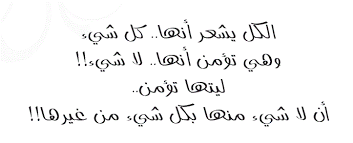 الكل يشعر أنها.. كل شيء
وهي تؤمن أنها.. لا شيء!!
ليتها تؤمن..
أن لا شيء منها بكل شيء من غيرها!!